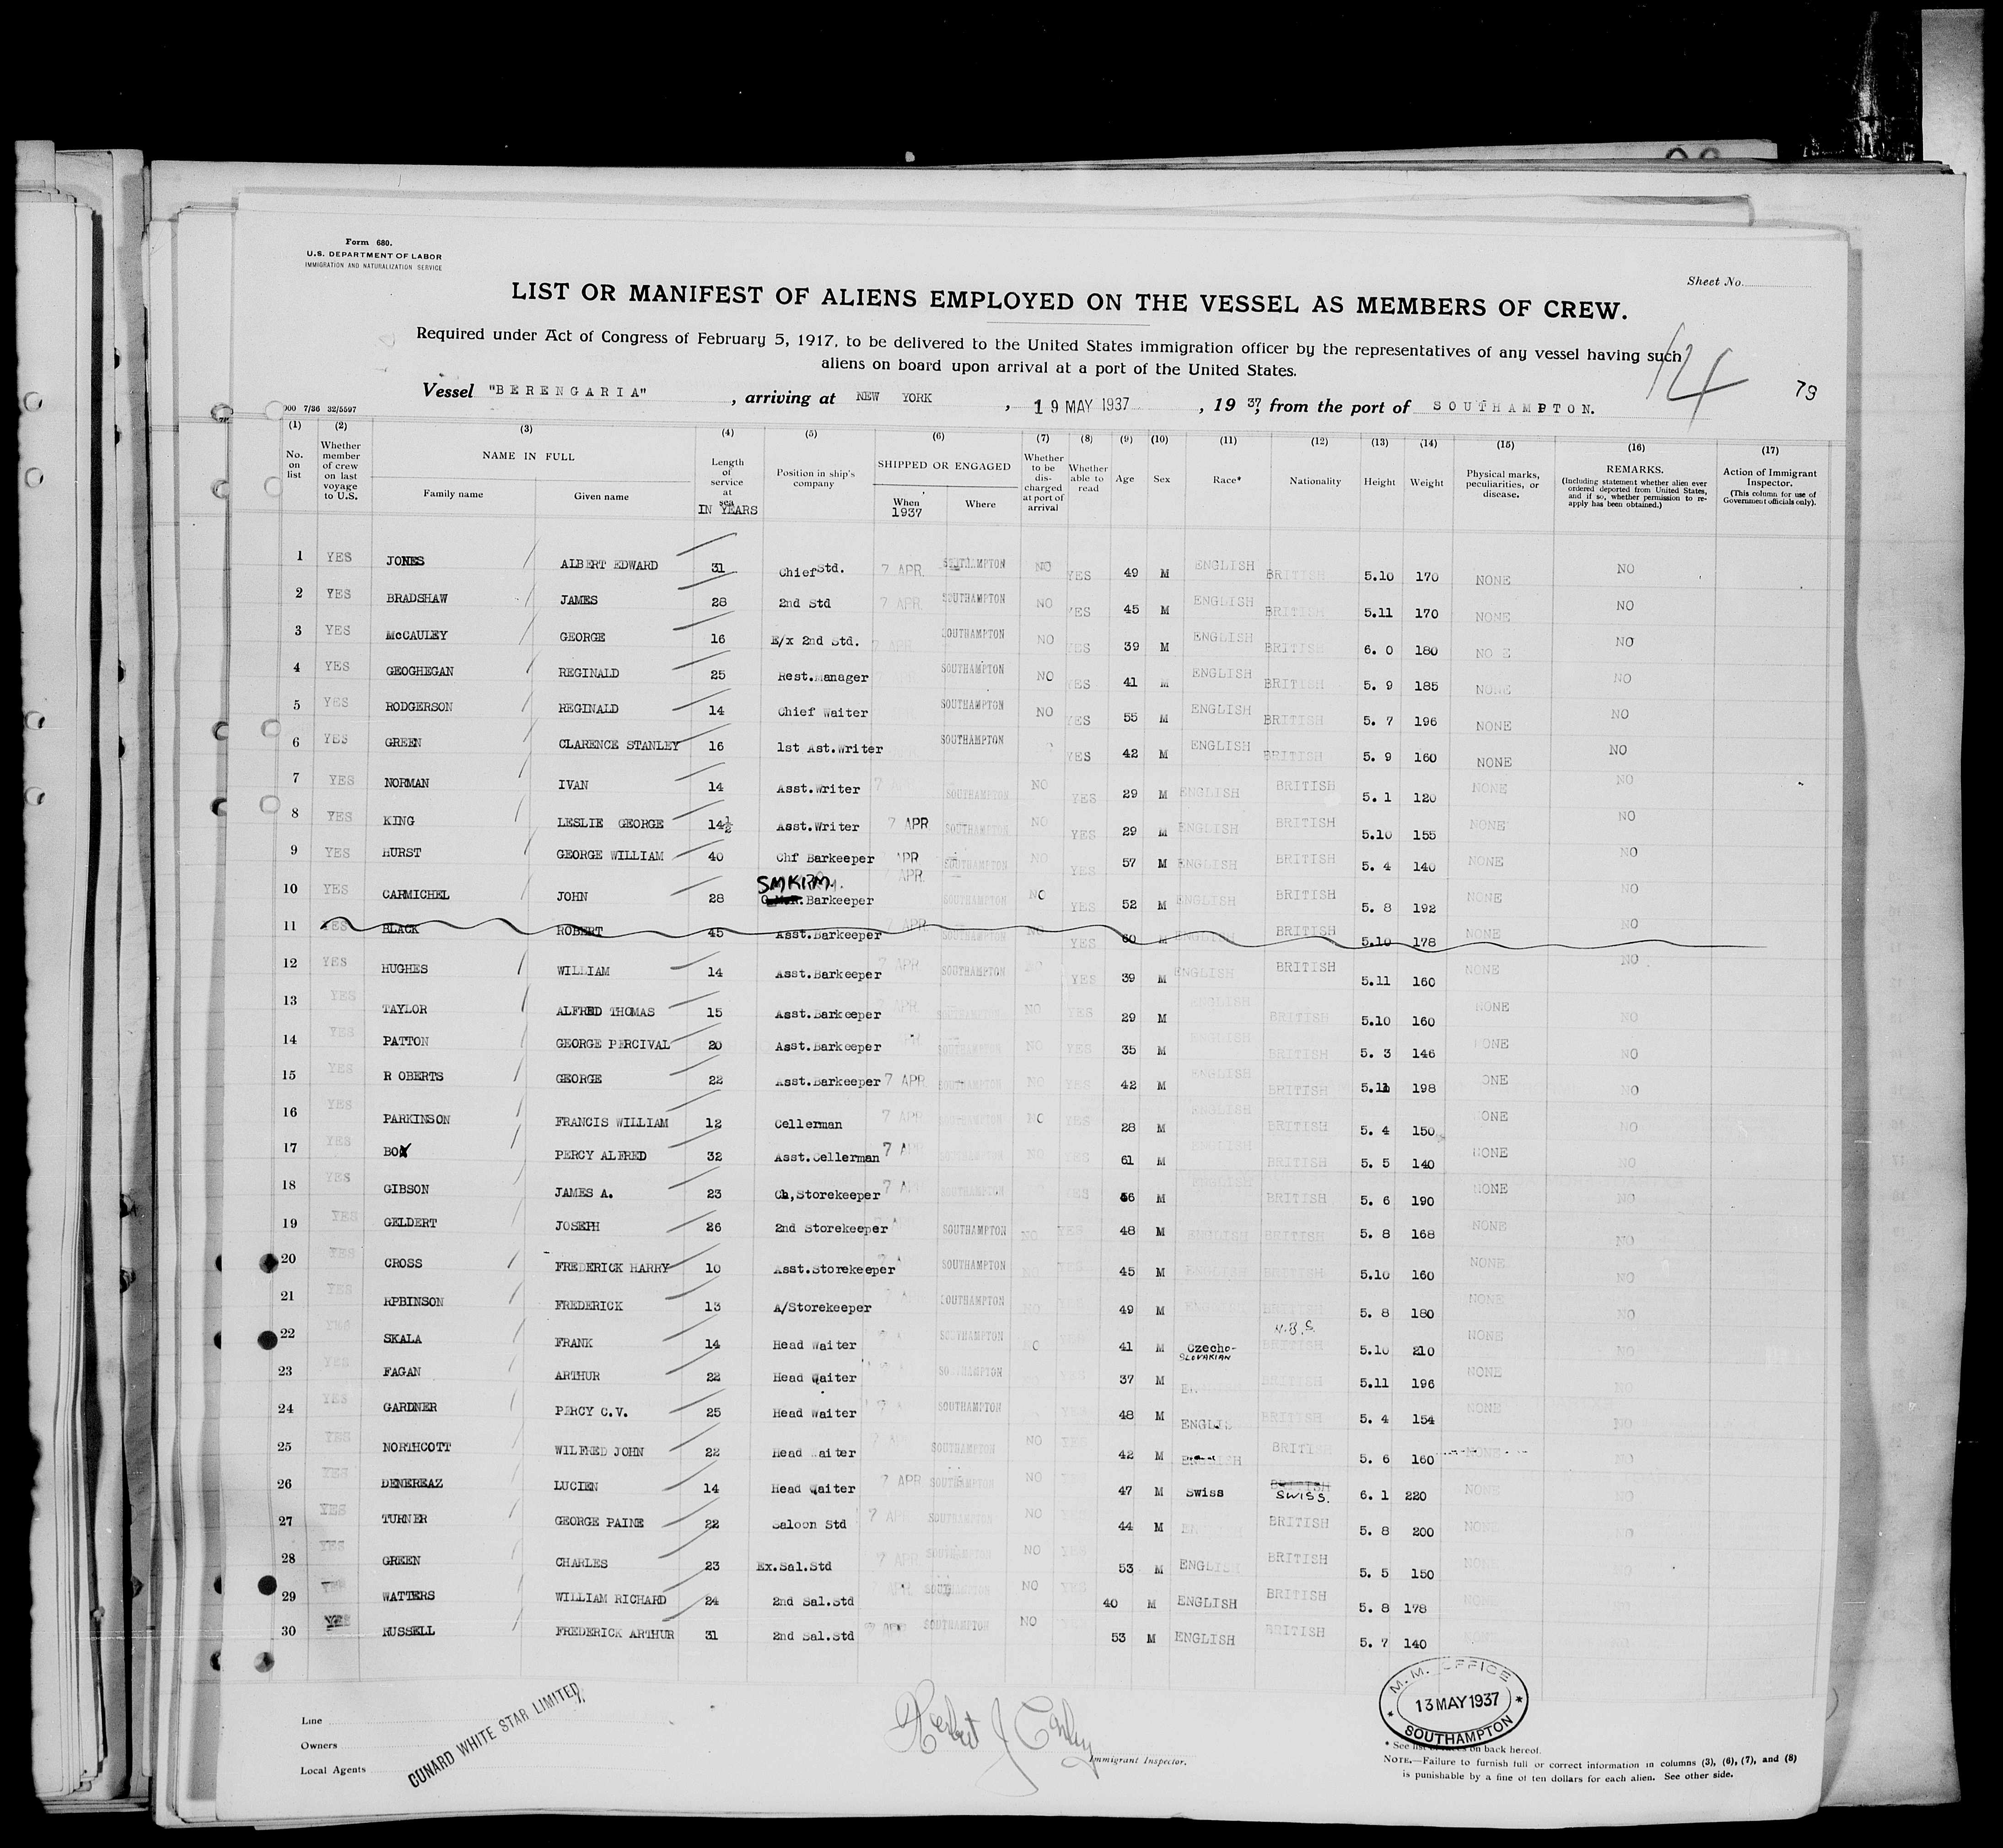 Form 680.
U.S. DEPARTMENT OF LABOR
IMMIGRATION AND NATURALIZATION SERVICE
Sheet No.
LIST OR MANIFEST OF ALIENS EMPLOYED ON THE VESSEL AS MEMBERS OF CREW.
Required under Act of Congress of February 5, 1917, to be delivered to the United States immigration officer by the representatives of any vessel having such
aliens on board upon arrival at a port of the United States.
124
79
Vessel "BERENGARIA", arriving at NEW YORK, 19 MAY 1937, 1937, from the port of SOUTHAMPTON.
000 7/36 32/5597
(1) (2) (3) (4) (5) (6) (7) (8) (9) (10) (11) (12) (13) (14) (15) (16) (17)
No. on list
Whether member of crew on last voyage to U.S.
NAME IN FULL
Family name
Given name
Length of service at sea
IN YEARS
Position in ship's company
SHIPPED OR ENGAGED
When
1937
Where
Whether to be discharged at port of arrival
Whether able to read
Age
Sex
Race*
Nationality
Height
Weight
Physical marks, peculiarities, or disease.
REMARKS.
(Including statement whether alien ever ordered deported from United States, and if so, whether permission to reapply has been obtained.)
Action of Immigrant Inspector.
(This column for use of Government officials only).
1 YES JONES ALBERT EDWARD 31 Chief Std. 7 APR. SOUTHAMPTON NO YES 49 M ENGLISH BRITISH 5.10 170 NONE NO
2 YES BRADSHAW JAMES 28 2nd Std 7 APR. SOUTHAMPTON NO YES 45 M ENGLISH BRITISH 5.11 170 NONE NO
3 YES McCAULEY GEORGE 16 E/x 2nd Std. 7 APR. SOUTHAMPTON NO YES 39 M ENGLISH BRITISH 6. 0 180 NO E NO
4 YES GEOGHEGAN REGINALD 25 Rest.Manager SOUTHAMPTON NO YES 41 M ENGLISH BRITISH 5. 9 185 NONE NO
5 YES RODGERSON REGINALD 14 Chief Waiter SOUTHAMPTON NO YES 55 M ENGLISH BRITISH 5. 7 196 NONE NO
6 YES GREEN CLARENCE STANLEY 16 1st Ast.Writer SOUTHAMPTON YES 42 M ENGLISH BRITISH 5. 9 160 NONE NO
7 YES NORMAN IVAN 14 Asst.Writer 7 AP SOUTHAMPTON NO YES 29 M ENGLISH BRITISH 5. 1 120 NONE NO
8 YES KING LESLIE GEORGE 14½ Asst.Writer 7 APR SOUTHAMPTON NO YES 29 M ENGLISH BRITISH 5.10 155 NONE NO
9 YES HURST GEORGE WILLIAM 40 Chf Barkeeper APR SOUTHAMPTON NO YES 57 M ENGLISH BRITISH 5. 4 140 NONE NO
10 YES CARMICHEL JOHN 28 SMKRM. Barkeeper APR. SOUTHAMPTON NO YES 52 M ENGLISH BRITISH 5. 8 192 NONE NO
11 YES BLACK ROBERT 45 Asst.Barkeeper 7 APR SOUTHAMPTON NO YES 60 M ENGLISH BRITISH 5.10 178 NONE NO
12 YES HUGHES WILLIAM 14 Asst.Barkeeper 7 APR SOUTHAMPTON YES 39 M ENGLISH BRITISH 5.11 160 NONE NO
13 YES TAYLOR ALFRED THOMAS 15 Asst.Barkeeper 7 APR SOUTHAMPTON NO YES 29 M ENGLISH BRITISH 5.10 160 NONE NO
14 YES PATTON GEORGE PERCIVAL 20 Asst.Barkeeper APR SOUTHAMPTON NO YES 35 M ENGLISH BRITISH 5. 3 146 ONE NO
15 YES R OBERTS GEORGE 22 Asst.Barkeeper 7 APR SOUTHAMPTON NO YES 42 M ENGLISH BRITISH 5.11 198 ONE NO
16 YES PARKINSON FRANCIS WILLIAM 12 Cellerman 7 APR SOUTHAMPTON NO YES 28 M ENGLISH BRITISH 5. 4 150 ONE NO
17 YES BOX PERCY ALFRED 32 Asst.Cellerman 7 A SOUTHAMPTON NO YES 61 M ENGLISH BRITISH 5. 5 140 NONE NO
18 YES GIBSON JAMES A. 23 Ch,Storekeeper 7 A SOUTHAMPTON YES 56 M ENGLISH BRITISH 5. 6 190 NONE NO
19 YES GELDERT JOSEPH 26 2nd Storekeeper SOUTHAMPTON NO YES 48 M ENGLISH BRITISH 5. 8 168 NONE NO
20 YES CROSS FREDERICK HARRY 10 Asst.Storekeeper SOUTHAMPTON 45 M ENGLISH BRITISH 5.10 160 NONE NO
21 YES RPBINSON FREDERICK 13 A/Storekeeper SOUTHAMPTON NO 49 M ENGLISH BRITISH 5. 8 180 NONE NO
22 YES SKALA FRANK 14 Head Waiter SOUTHAMPTON 41 M Czecho-SLOVAKIAN BRITISH 5.10 210 NONE NO
23 YES FAGAN ARTHUR 22 Head Waiter SOUTHAMPTON YES 37 M BRITISH 5.11 196 NONE NO
24 YES GARDNER PERCY C.V. 25 Head Waiter SOUTHAMPTON YES 48 M ENGLISH BRITISH 5. 4 154 NONE NO
25 YES NORTHCOTT WILFRED JOHN 22 Head Waiter SOUTHAMPTON NO YES 42 M ENGLISH BRITISH 5. 6 160 NONE NO
26 YES DENEREAZ LUCIEN 14 Head Waiter 7 APR SOUTHAMPTON NO 47 M Swiss BRITISH SWISS. 6. 1 220 NONE NO
27 YES TURNER GEORGE PAINE 22 Saloon Std 7 AP SOUTHAMPTON NO 44 M BRITISH 5. 8 200 NONE NO
28 YES GREEN CHARLES 23 Ex.Sal.Std 7 APR SOUTHAMPTON NO YES 53 M ENGLISH BRITISH 5. 5 150 NO
29 YES WATTERS WILLIAM RICHARD 24 2nd Sal.Std APR SOUTHAMPTON NO YES 40 M ENGLISH BRITISH 5. 8 178
30 YES RUSSELL FREDERICK ARTHUR 31 2nd Sal.Std SOUTHAMPTON NO 53 M ENGLISH BRITISH 5. 7 140
Line
Owners
Local Agents
CUNARD WHITE STAR LIMITED,
Immigrant Inspector.
M. M. OFFICE
13 MAY 1937
SOUTHAMPTON
* See list of races on back hereof.
NOTE.—Failure to furnish full or correct information in columns (3), (6), (7), and (8)
is punishable by a fine of ten dollars for each alien. See other side.